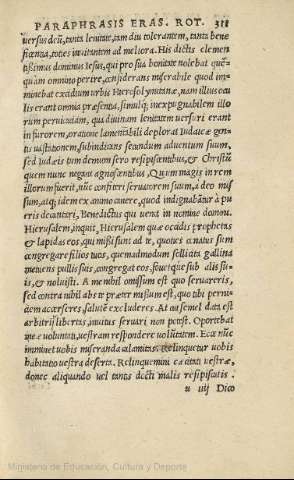 PARAPHRASIS ERAS. ROT. 311
uersus deũ, tanta lenitate, tam diu tolerantem, tanta bene
ficentia, toties inuitantem ad meliora. His dictis clemen
tissimus dominus Iesus, qui pro sua bonitate nolebat quẽ-
quàm omnino perire, considerans miserabile quod im-
minebat excidium urbis Hierosolymitanæ, nam illius ocu
lis erant omnia præsentia, simulq; inexpugnabilem illo
rum peruicaciam, qui diuinam lenitatem uersuri erant
in furorem, oratione lamentabili deplorat Iudaicæ gen-
tis uastitionem, subindicans secundum aduentum suum,
sed Iudæis tum demum sero resipiscentibus, & Christũ
quem nunc negant agnoscentibus. Quum magis in rem
illorum fuerit, nũc confiteri seruatorem suum, à deo mis
sum, atq; idem ex animo canere, quod indignabãtur à pu
eris decantari, Benedictus qui uenit in nomine domini.
Hierusalem, inquit, Hierusalem quæ occidis prophetas
& lapidas eos, qui missi sunt ad te, quoties conatus sum
congregare filios tuos, quemadmodum sollicita gallina
metuens pullis suis, congregat eos, fouetque sub alis su-
is, & noluisti. A me nihil omissum est quo seruareris,
sed contra nihil abs te præter missum est, quo tibi perni-
ciem accerseres, salutẽ excluderes. At cui semel data est
arbitrij libertas, inuitus seruari non potest. Oportebat
meæ voluntati, uestram respondere volũtatem. Ecce nũc
imminet uobis miseranda calamitas. Relinquetur uobis
habitatio uestra deserta. Relinquemini cæcitati uestræ,
donec aliquando uel tantis docti malis resipiscatis.
u iiij Dico
Ministerio de Educación, Cultura y Deporte